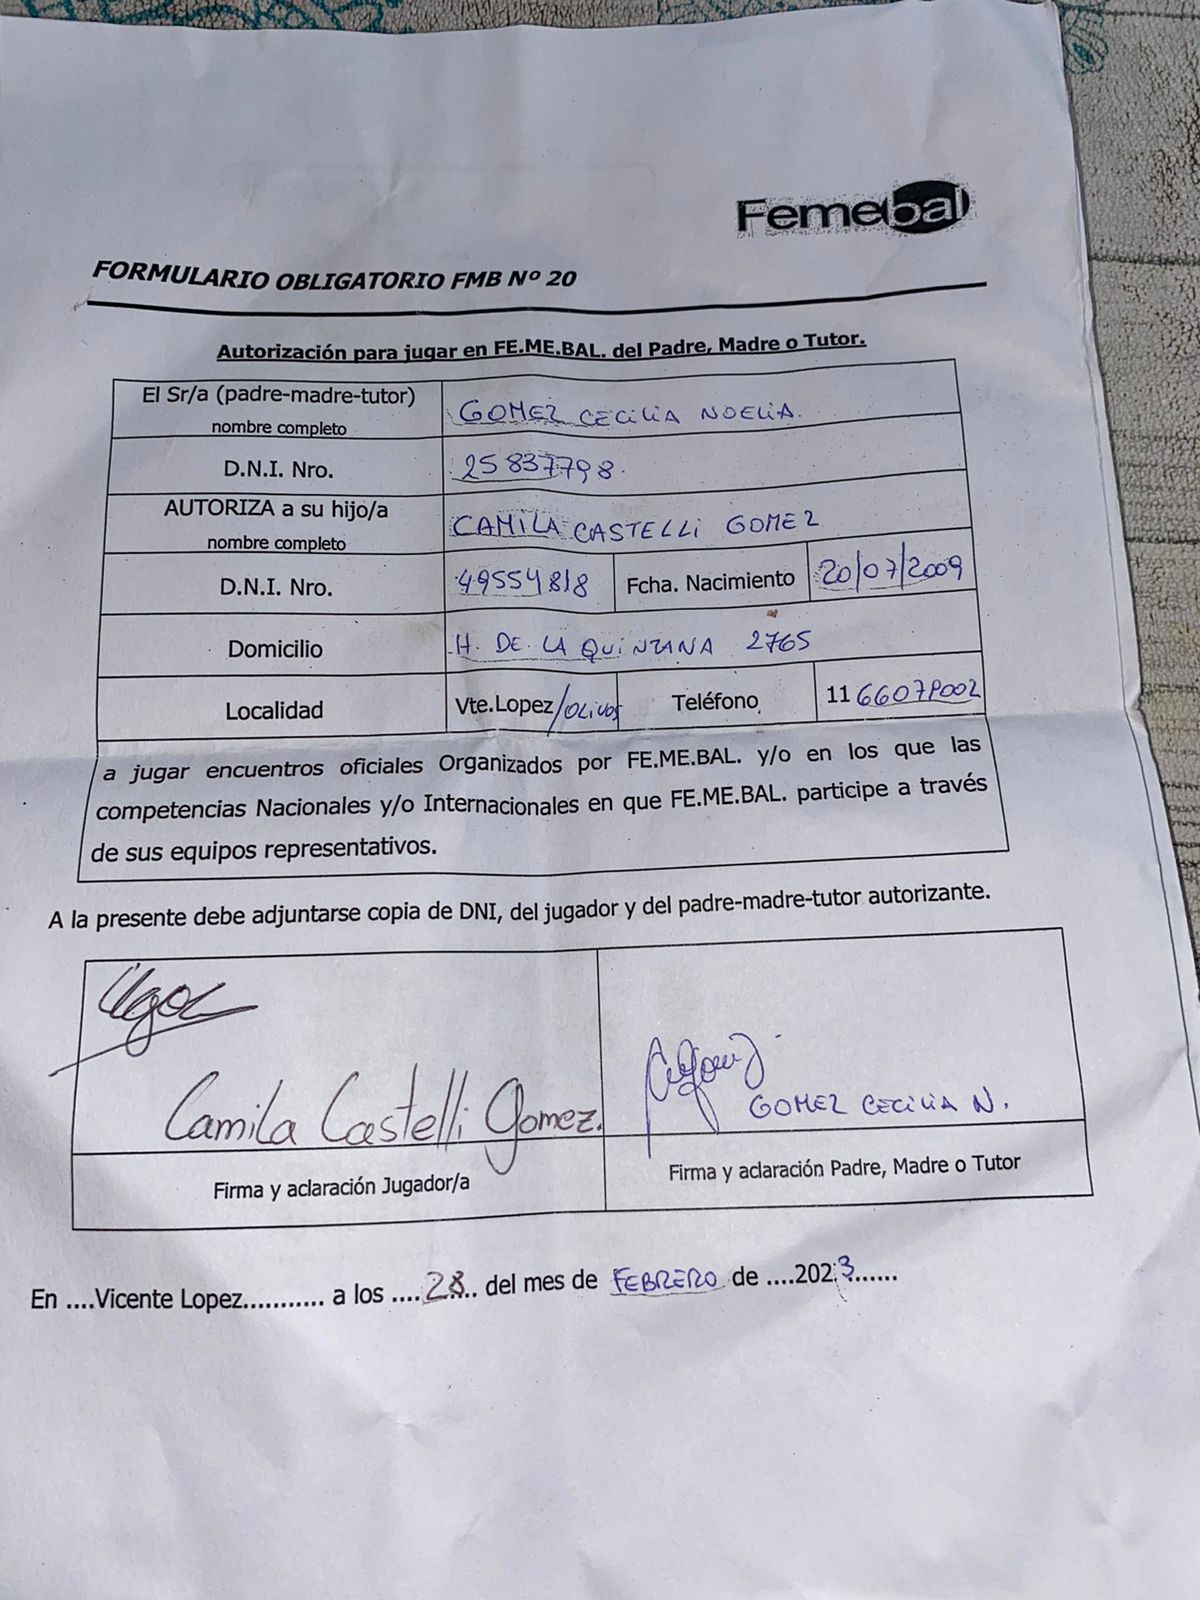 Femebal
FORMULARIO OBLIGATORIO FMB Nº 20
Autorización para jugar en FE.ME.BAL. del Padre, Madre o Tutor.
El Sr/a (padre-madre-tutor)
nombre completo
GOMEZ CECILIA NOELIA.
D.N.I. Nro.
25837798.
AUTORIZA a su hijo/a
nombre completo
CAMILA CASTELLI GOMEZ
D.N.I. Nro.
49554818
Fcha. Nacimiento
20/07/2009
Domicilio
H. DE LA QUINTANA 2765
Localidad
Vte.Lopez/OLIVOS
Teléfono
11
a jugar encuentros oficiales Organizados por FE.ME.BAL. y/o en los que las
competencias Nacionales y/o Internacionales en que FE.ME.BAL. participe a través
de sus equipos representativos.
A la presente debe adjuntarse copia de DNI, del jugador y del padre-madre-tutor autorizante.
Camila Castelli Gomez.
GOMEZ CECILIA N.
Firma y aclaración Jugador/a
Firma y aclaración Padre, Madre o Tutor
En ....Vicente Lopez........... a los ....28... del mes de FEBRERO de ....2023.......